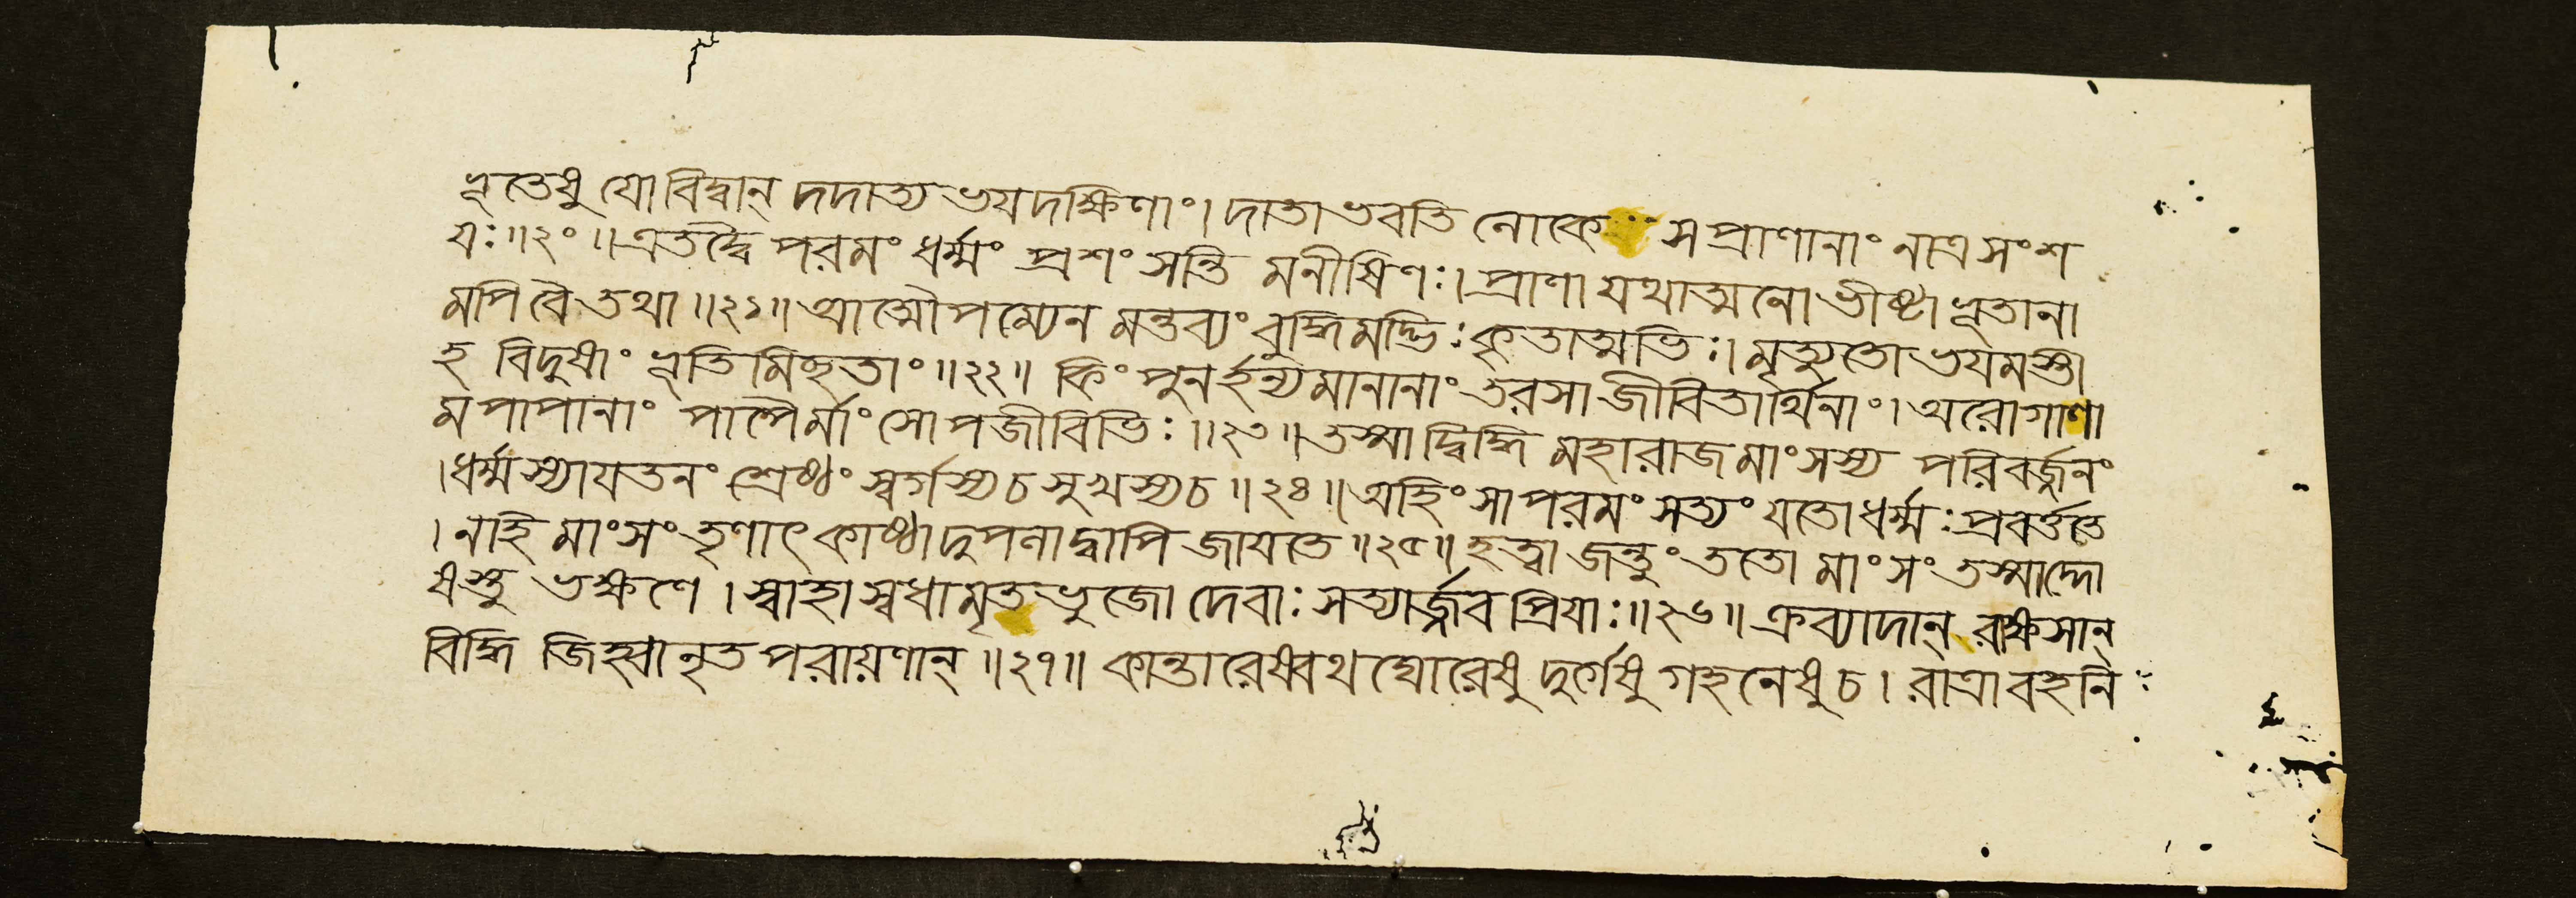 ভূতেষু যো বিদ্বান্ দদাত্যভযদক্ষিণাং। দাতা ভবতি লোকে স প্রাণানাং নাত্র সংশ
যঃ॥২০॥ এতদ্বৈ পরমং ধর্ম্মং প্রশংসন্তি মনীষিণঃ। প্রাণা যথাত্মনোভীষ্টা ভূতানা
মপি বৈ তথা॥২১॥ আত্মৌপম্যেন মন্তব্যং বুদ্ধিমদ্ভিঃ কৃতাত্মভিঃ। মৃত্যুতো ভযমস্তী
হ বিদুষাং ভূতিমিচ্ছতাং॥২২॥ কিং পুনর্হন্যমানানাং তরসা জীবিতার্থিনাং। অরোগাণা
মপাপানাং পাপৈর্মাংসোপজীবিভিঃ॥২৩॥ তস্মাদ্বিদ্ধি মহারাজ মাংসস্য পরিবর্জ্জনং
।ধর্ম্মস্যাযতনং শ্রেষ্ঠং স্বর্গস্য চ সুখস্য চ॥২৪॥ অহিংসা পরমং সত্যং যতো ধর্ম্মঃ প্রবর্ত্ততে
।নাহি মাংসং তৃণাৎ কাষ্ঠাদুপলাদ্বাপি জাযতে॥২৫॥ হত্বা জন্তুং ততো মাংসং তস্মাদ্দো
ষস্তু ভক্ষণে। স্বাহাস্বধামৃতভুজো দেবাঃ সত্যার্জ্জবপ্রিযাঃ॥২৬॥ ক্রব্যাদান্ রাক্ষসান্
বিদ্ধি জিহ্মানৃতপরায়ণান্॥২৭॥ কান্তারেষ্বথ ঘোরেষু দুর্গেষু গহনেষু চ। রাত্রাবহনি